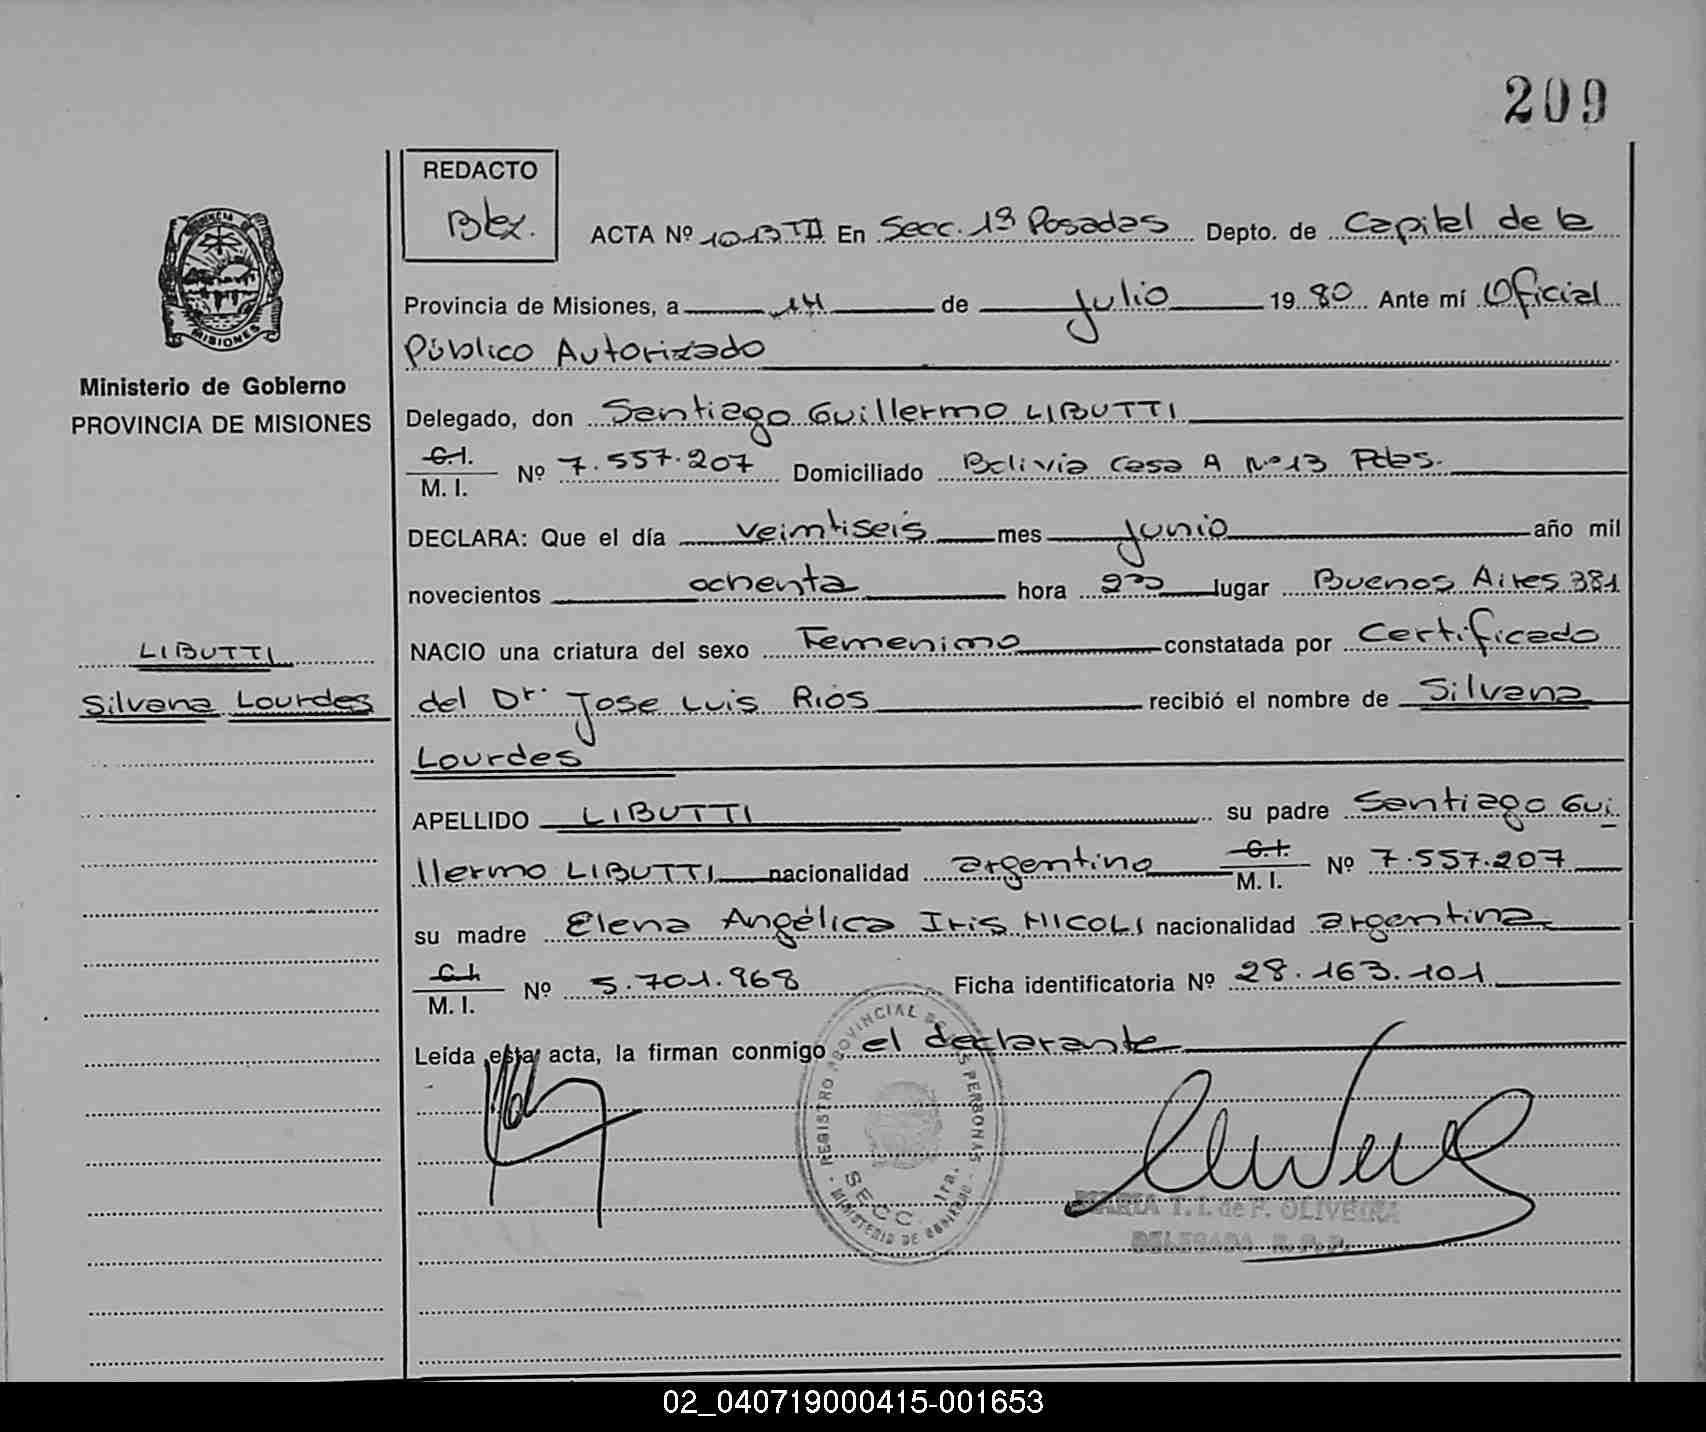 209
REDACTO
Blex.
ACTA Nº 1013 TII En Secc. 1ª Posadas Depto. de Capital de la
Provincia de Misiones, a 14 de Julio 19 80 Ante mí Oficial
Público Autorizado
Ministerio de Gobierno
PROVINCIA DE MISIONES
Delegado, don Santiago Guillermo LIBUTTI
C.I.
M. I. Nº 7.557.207 Domiciliado Bolivia Casa A Nº 13 Pdas.
DECLARA: Que el día veintiseis mes Junio año mil
novecientos ochenta hora 2 30 lugar Buenos Aires 381
LIBUTTI
NACIO una criatura del sexo Femenino constatada por Certificado
Silvana Lourdes
del Dr. Jose Luis Rios recibió el nombre de Silvana
Lourdes
APELLIDO LIBUTTI su padre Santiago Gui
llermo LIBUTTI nacionalidad argentino C.I.
M. I. Nº 7.557.207
su madre Elena Angélica Iris NICOLI nacionalidad argentina
C.I.
M. I. Nº 5.701.968 Ficha identificatoria Nº 28.163.101
Leída esta acta, la firman conmigo el declarante
REGISTRO PROVINCIAL DE LAS PERSONAS
SECC. 1ra.
MINISTERIO DE GOBIERNO
MARIA T. I. de F. OLIVEIRA
DELEGADA R. P. P.
MISIONES
02_040719000415-001653